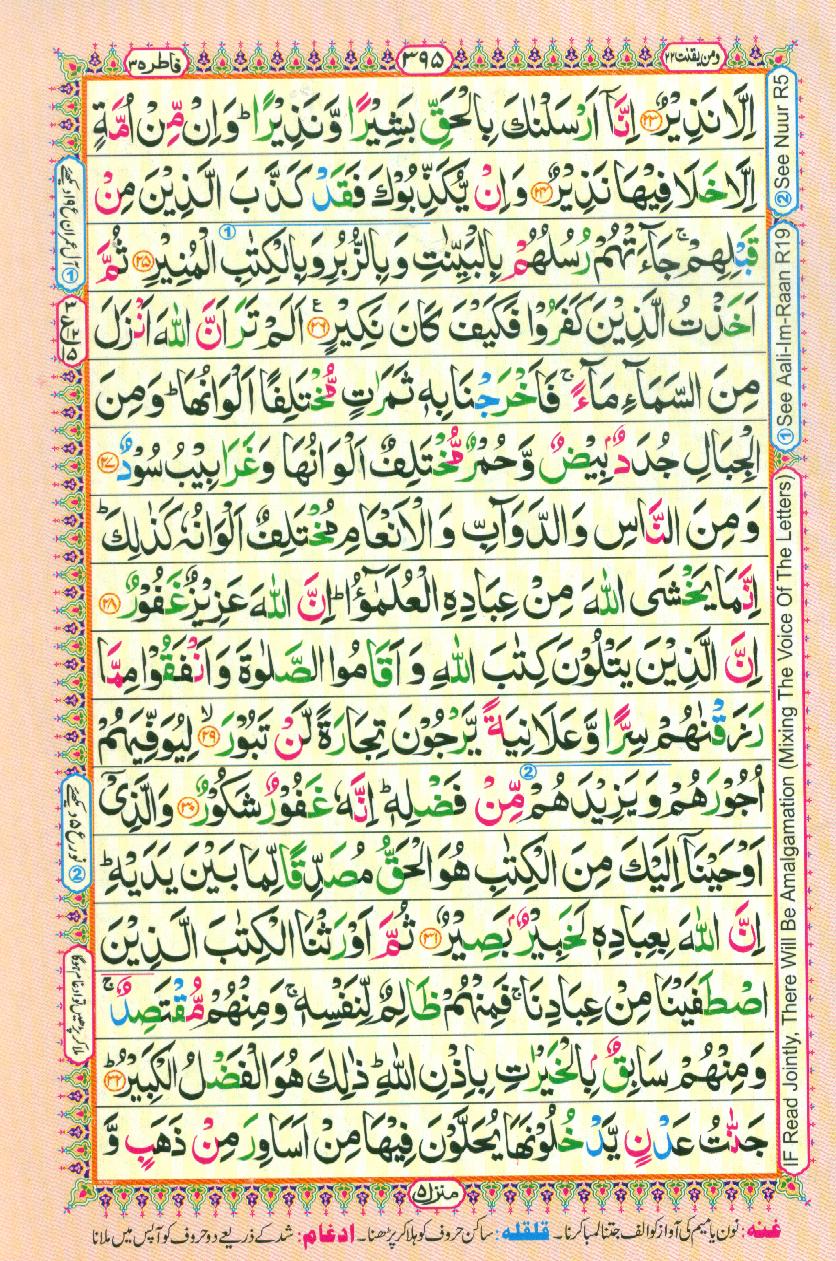 ومن یقنت ۲۲
۳۹۵
فاطر ۳۵
اِلَّا نَذِیْرٌ ﴿۲۳﴾ اِنَّاۤ اَرْسَلْنٰكَ بِالْحَقِّ بَشِیْرًا وَّ نَذِیْرًاؕ وَ اِنْ مِّنْ اُمَّةٍ
اِلَّا خَلَا فِیْهَا نَذِیْرٌ ﴿۲۴﴾ وَ اِنْ یُّكَذِّبُوْكَ فَقَدْ كَذَّبَ الَّذِیْنَ مِنْ
قَبْلِهِمْۚ جَآءَتْهُمْ رُسُلُهُمْ بِالْبَیِّنٰتِ وَ بِالزُّبُرِ وَ بِالْكِتٰبِ الْمُنِیْرِ ﴿۲۵﴾ ثُمَّ
اَخَذْتُ الَّذِیْنَ كَفَرُوْا فَكَیْفَ كَانَ نَكِیْرِ ﴿۲۶﴾ اَلَمْ تَرَ اَنَّ اللّٰهَ اَنْزَلَ
مِنَ السَّمَآءِ مَآءًۚ فَاَخْرَجْنَا بِهٖ ثَمَرٰتٍ مُّخْتَلِفًا اَلْوَانُهَاؕ وَ مِنَ
الْجِبَالِ جُدَدٌۢ بِیْضٌ وَّ حُمْرٌ مُّخْتَلِفٌ اَلْوَانُهَا وَ غَرَابِیْبُ سُوْدٌ ﴿۲۷﴾
وَ مِنَ النَّاسِ وَ الدَّوَآبِّ وَ الْاَنْعَامِ مُخْتَلِفٌ اَلْوَانُهٗ كَذٰلِكَؕ
اِنَّمَا یَخْشَى اللّٰهَ مِنْ عِبَادِهِ الْعُلَمٰٓؤُاؕ اِنَّ اللّٰهَ عَزِیْزٌ غَفُوْرٌ ﴿۲۸﴾
اِنَّ الَّذِیْنَ یَتْلُوْنَ كِتٰبَ اللّٰهِ وَ اَقَامُوا الصَّلٰوةَ وَ اَنْفَقُوْا مِمَّا
رَزَقْنٰهُمْ سِرًّا وَّ عَلَانِیَةً یَّرْجُوْنَ تِجَارَةً لَّنْ تَبُوْرَۙ ﴿۲۹﴾ لِیُوَفِّیَهُمْ
اُجُوْرَهُمْ وَ یَزِیْدَهُمْ مِّنْ فَضْلِهٖؕ اِنَّهٗ غَفُوْرٌ شَكُوْرٌ ﴿۳۰﴾ وَ الَّذِیْۤ
اَوْحَیْنَاۤ اِلَیْكَ مِنَ الْكِتٰبِ هُوَ الْحَقُّ مُصَدِّقًا لِّمَا بَیْنَ یَدَیْهِؕ
اِنَّ اللّٰهَ بِعِبَادِهٖ لَخَبِیْرٌۢ بَصِیْرٌ ﴿۳۱﴾ ثُمَّ اَوْرَثْنَا الْكِتٰبَ الَّذِیْنَ
اصْطَفَیْنَا مِنْ عِبَادِنَاۚ فَمِنْهُمْ ظَالِمٌ لِّنَفْسِهٖۚ وَ مِنْهُمْ مُّقْتَصِدٌۚ
وَ مِنْهُمْ سَابِقٌۢ بِالْخَیْرٰتِ بِاِذْنِ اللّٰهِؕ ذٰلِكَ هُوَ الْفَضْلُ الْكَبِیْرُؕ ﴿۳۲﴾
جَنّٰتُ عَدْنٍ یَّدْخُلُوْنَهَا یُحَلَّوْنَ فِیْهَا مِنْ اَسَاوِرَ مِنْ ذَهَبٍ وَّ
منزل ۵
② See Nuur R5
① See Aali-Im-Raan R19
IF Read Jointly, There Will Be Amalgamation (Mixing The Voice Of The Letters)
① آل عمران ع ۱۹ دیکھئے
② نور ع ۵ دیکھئے
ملا کر پڑھیں تو ادغام ہوگا
غنہ: نون یا میم کی آواز کو الف جتنا لمبا کرنا۔ قلقلہ: ساکن حروف کو ہلا کر پڑھنا۔ ادغام: شد کے ذریعے دو حروف کو آپس میں ملانا